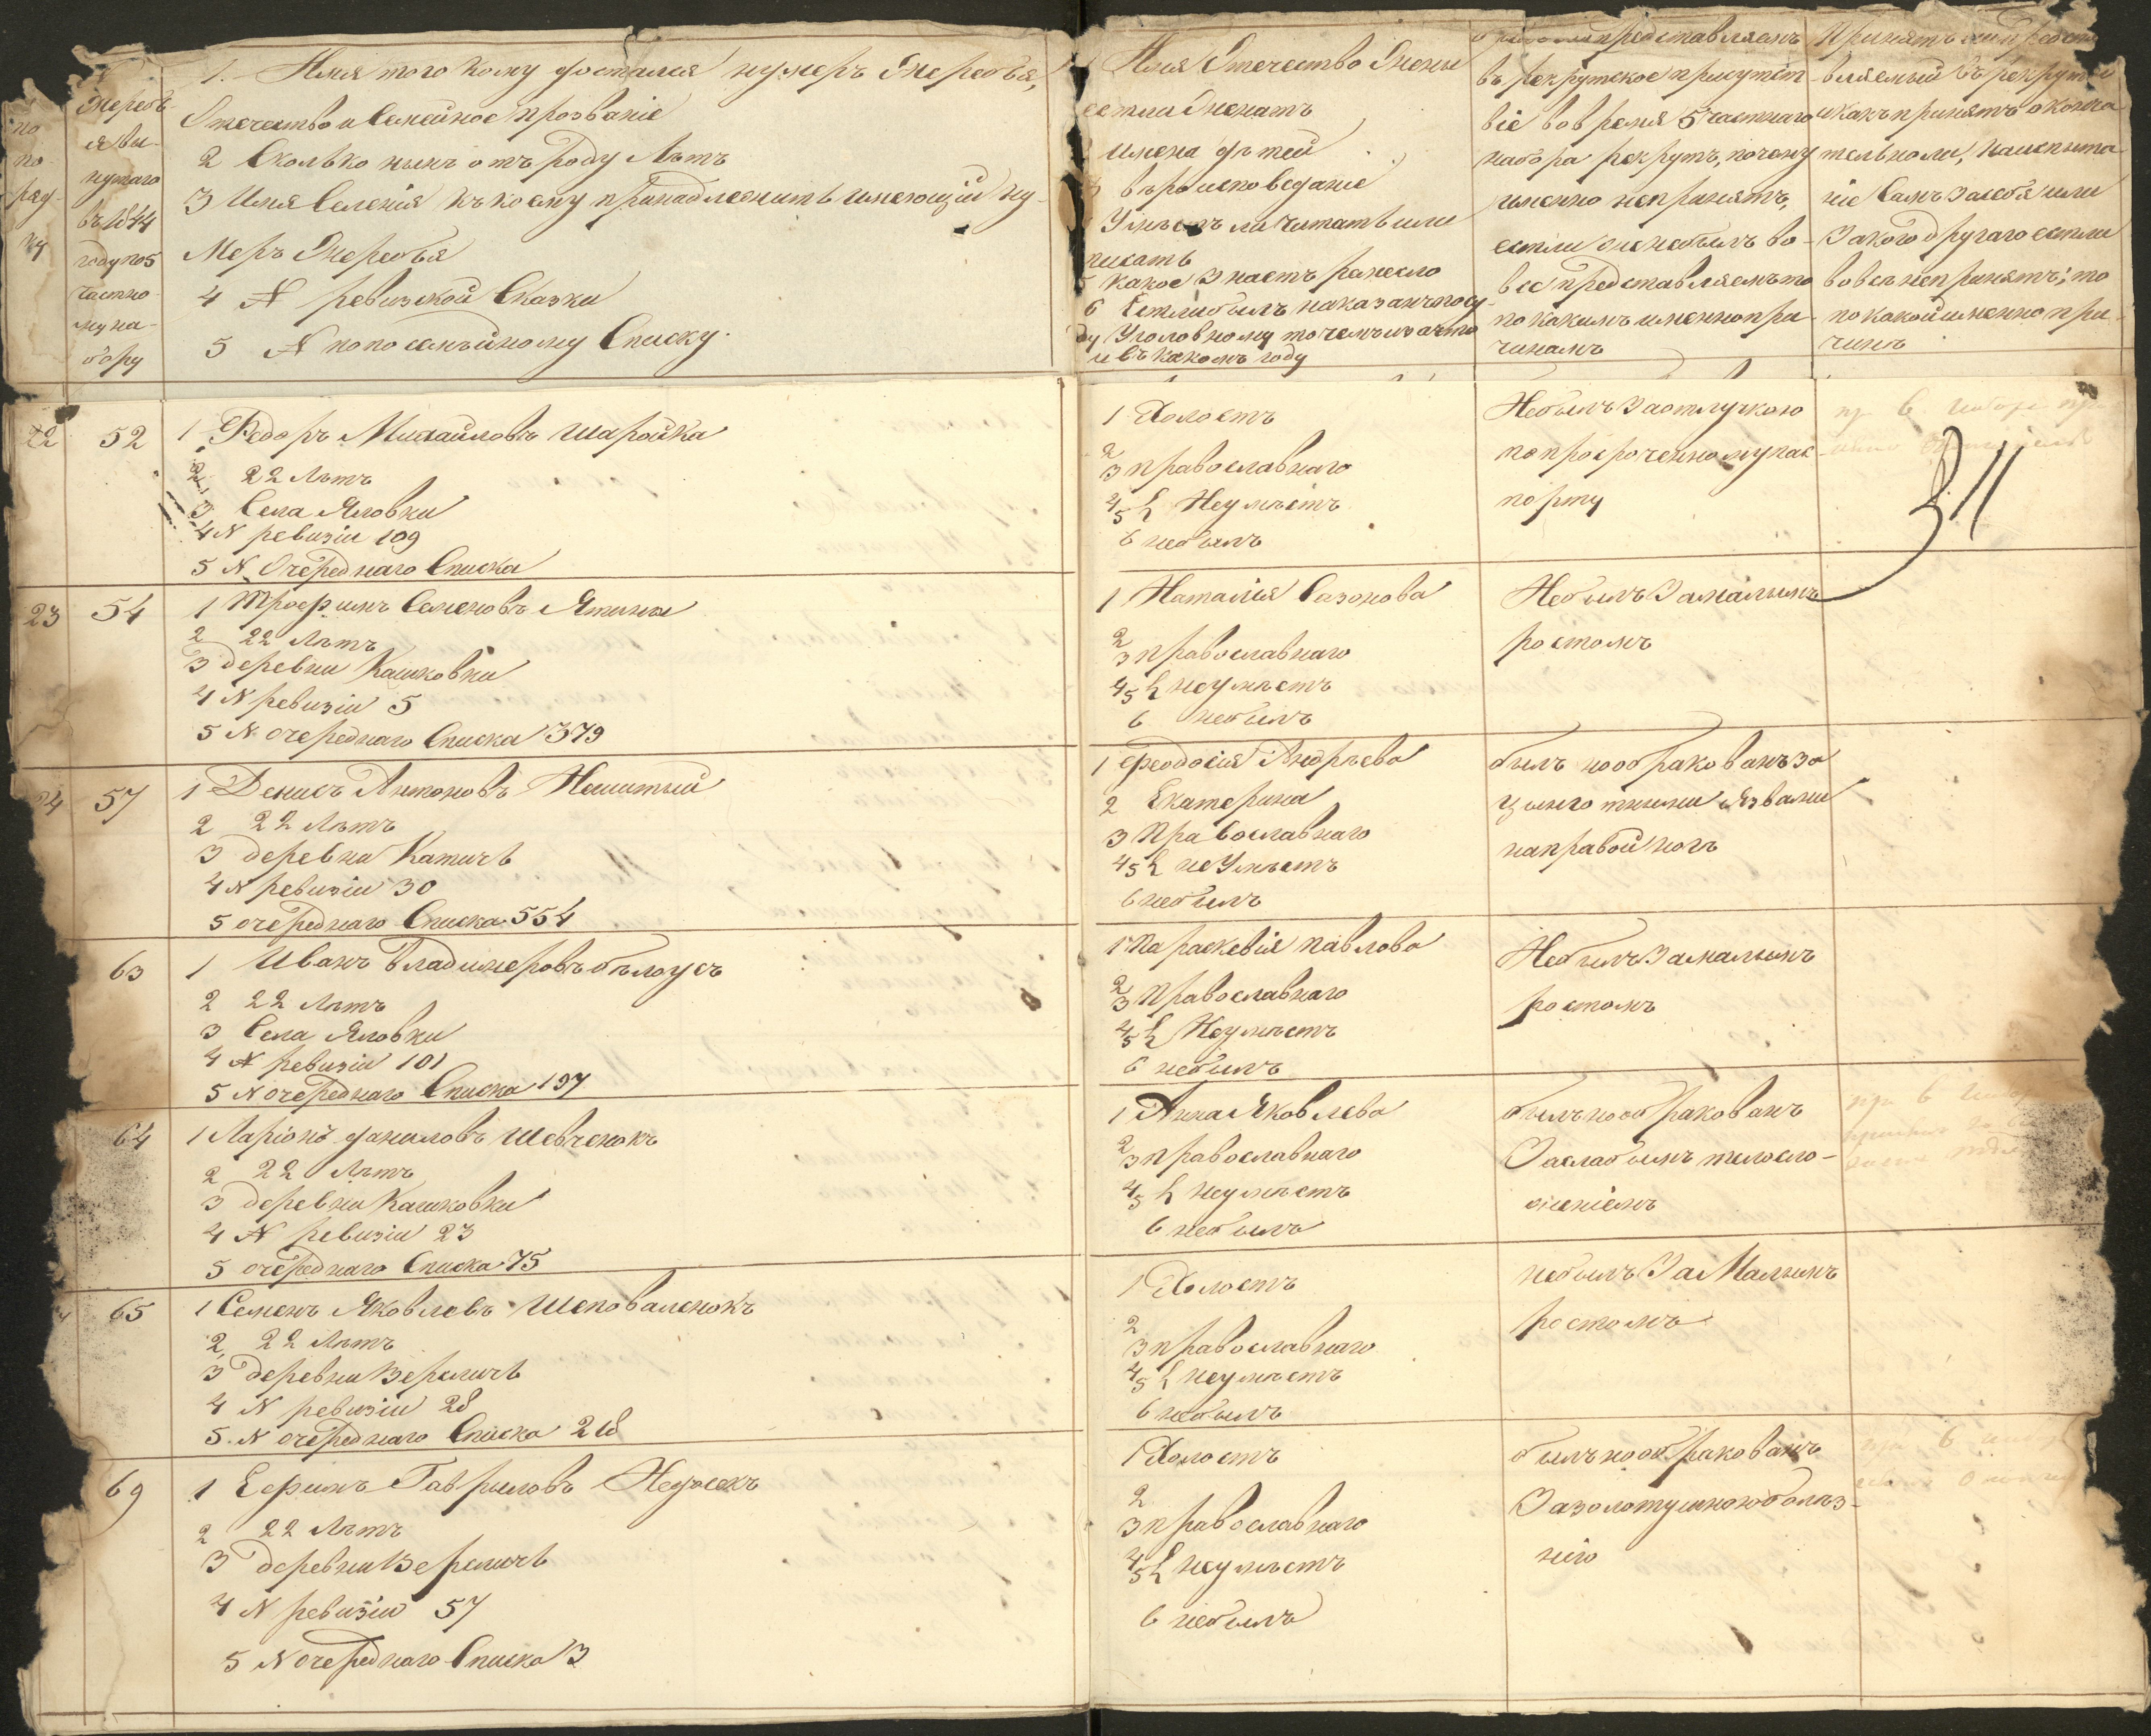 №
Жеребь-
я вы-
нутаго
въ 1844
году по 5
частно-
му на-
бору
по
по-
ряд-
ку
1. Имя того кому достался нумеръ Жеребья,
Отечество и Семейное прозваніе
2 Сколько нынѣ отъ роду Лѣтъ
3 Имя Селенія къ коему принадлежитъ имеющій ну-
меръ Жеребья
4 № ревизской Сказки
5 № по посемѣйному Списку.
Имя Отечество Жены
естли Женатъ
имена дѣтей
3 вѣроисповеданіе
Умѣетъ ли Читать или
писать
5 какое Знаетъ ремесло
6 Естли былъ наказанъ по су-
ду Уголовному то чемъ и за что
и въ какомъ году
представляемъ
въ рекрутское присутст-
віе во время 5 частнаго
набора рекрутъ, почему
именно непринятъ,
естли же небылъ во-
все представляемъ то
по какимъ именно при-
чинамъ
Принятъ ли предста-
вляемый въ рекруты
и какъ принятъ оконча-
тельно ли, на испыта-
ніе Самъ За себя или
За кого другаго естли
вовсе непринятъ; то
по какой именно при-
чинѣ
22 52 1 Федоръ Михайловъ Шаройка
2 22 Лѣтъ
3 Села Яловки
4 N ревизіи 109
5 N Очереднаго Списка
1 Холостъ
2
3 православнаго
4 5 Неумѣетъ
6 небылъ
Небылъ За отлучкою
по просроченному пас-
порту
311
23 54 1 Трофимъ Семеновъ Ятина
2 22 Лѣтъ
3 деревни Кашковки
4 N ревизіи 5
5 N очереднаго Списка 379
1 Наталія Сазонова
2
3 православнаго
4 5 неумѣетъ
6 небылъ
Небылъ За малымъ
ростомъ
24 57 1 Денисъ Антоновъ Нешитый
2 22 Лѣтъ
3 деревни Катичь
4 N ревизіи 30
5 очереднаго Списка 554
1 Феодосія Андрѣева
2 Екатерина
3 Православнаго
4 5 не Умѣетъ
6 небылъ
былъ но обракованъ за
цынготными Язвами
на правой ногѣ
63 1 Иванъ Владимеровъ бѣлоусъ
2 22 Лѣтъ
3 Села Яловки
4 N ревизіи 101
5 N очереднаго Списка 197
1 Параскевія павлова
2
3 Православнаго
4 5 Неумѣетъ
6 небылъ
Небылъ За малымъ
ростомъ
64 1 Ларіонъ даниловъ Шевченокъ
2 22 Лѣтъ
3 деревни Кашковки
4 N ревизіи 23
5 очереднаго Списка 75
1 Анна Яковлева
2
3 православнаго
4 5 неумѣетъ
6 небылъ
былъ но обракованъ
За слабымъ телосло-
женіемъ
65 1 Семенъ Яковлевъ Шеповаленокъ
2 22 Лѣтъ
3 деревни Верещичь
4 N ревизіи 28
5. N очереднаго Списка 218
1 Холостъ
2
3 православнаго
4 5 неумѣетъ
6 небылъ
небылъ За Малымъ
ростомъ
69 1 Ефимъ Гавриловъ
2 22 Лѣтъ
3 деревни
4 N ревизіи 57
5 N очереднаго Списка 3
1 Холостъ
2
3 православнаго
4 5 неумѣетъ
6 небылъ
былъ но обракованъ
За золотушною болѣз-
нію